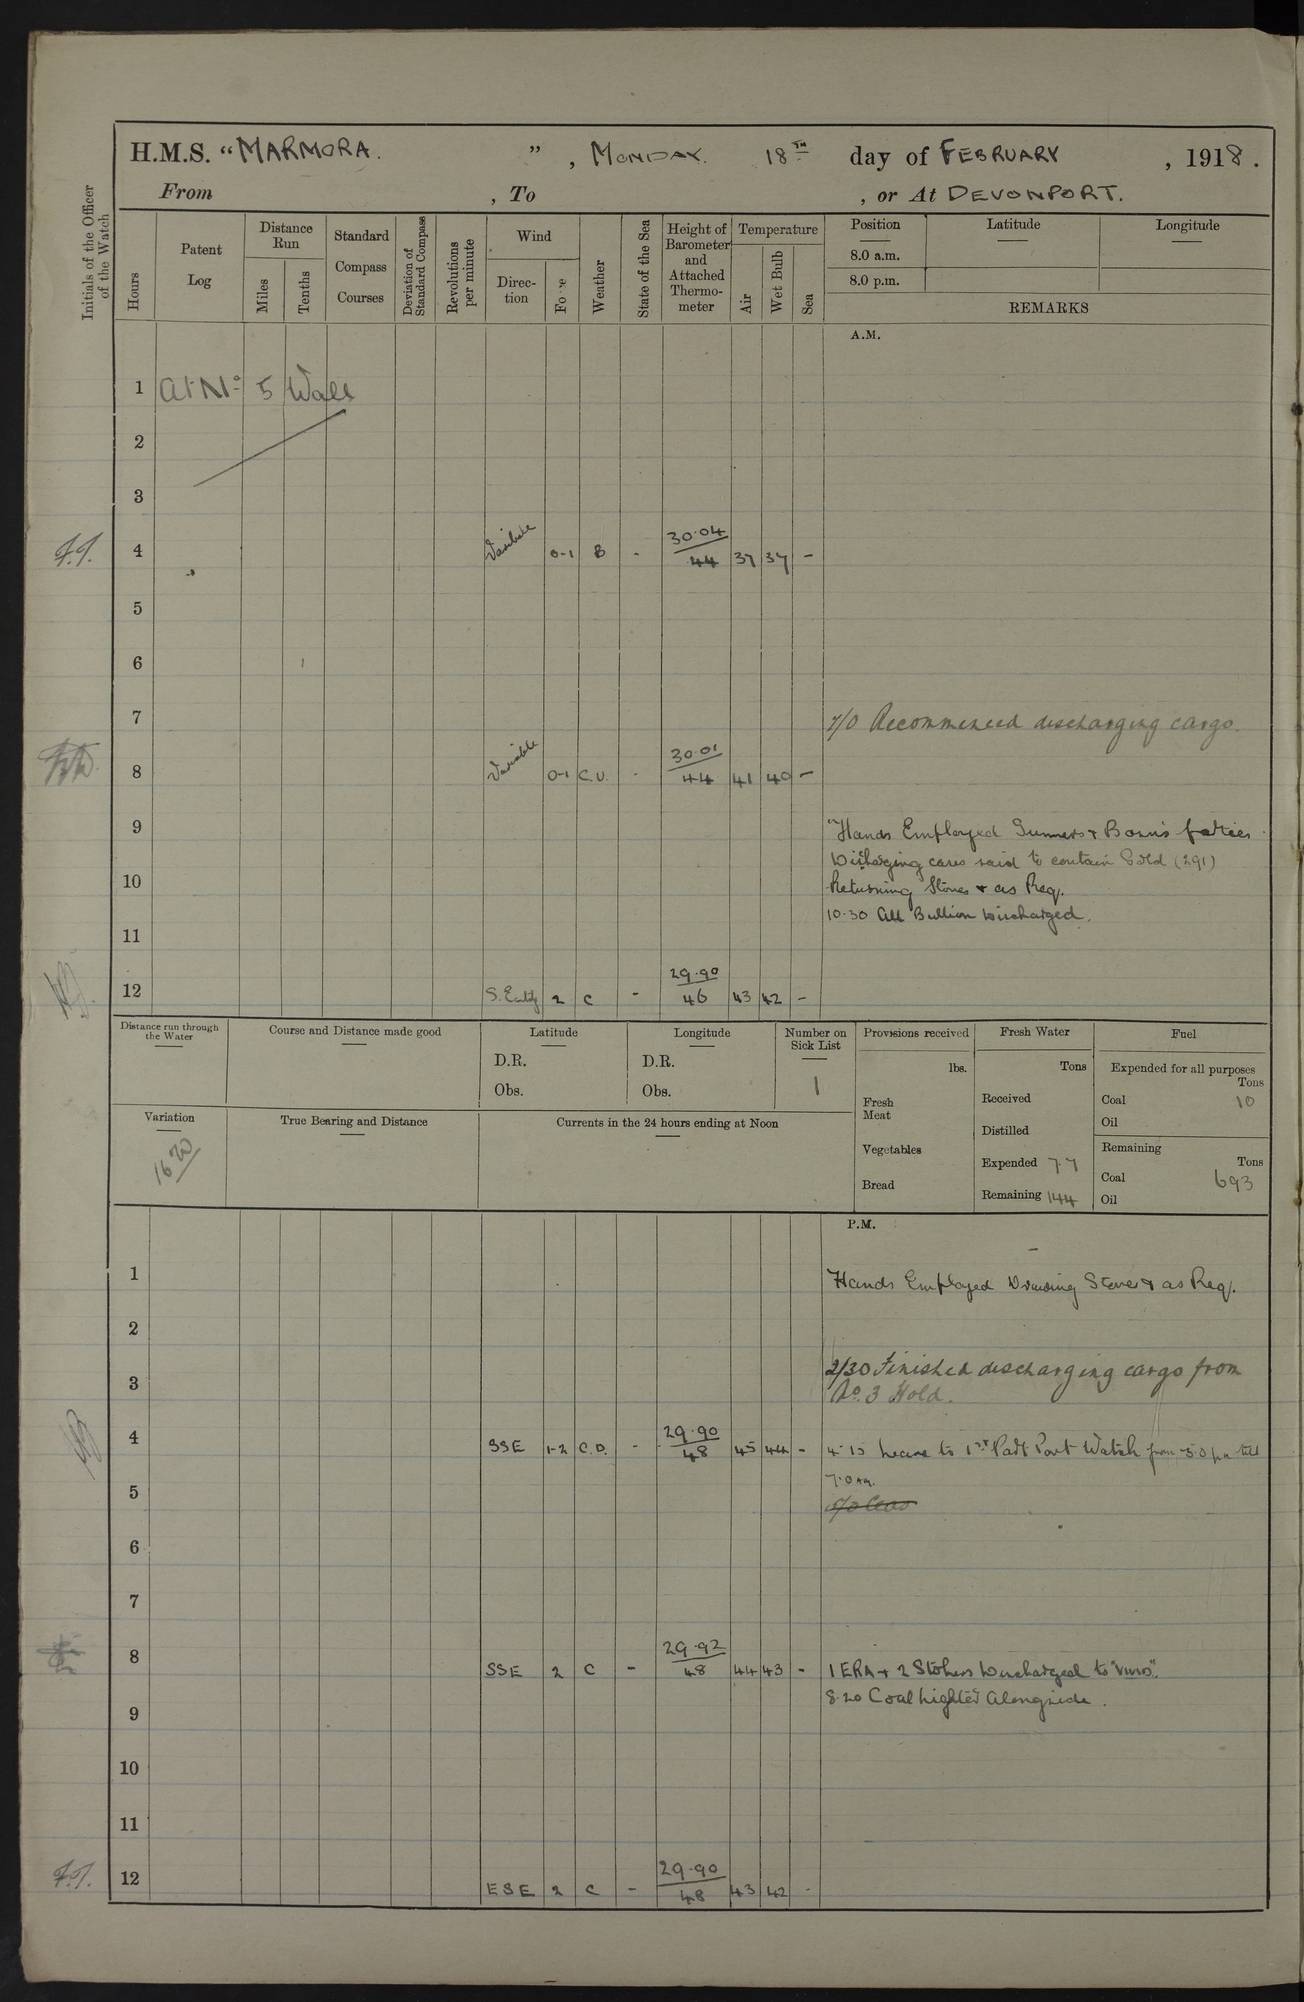 H.M.S. "MARMORA. " , MONDAY. 18TH day of FEBRUARY , 1918.
From , To , or At DEVONPORT.
Initials of the Officer of the Watch
Hours
Patent Log
Distance Run
Miles
Tenths
Standard Compass Courses
Deviation of Standard Compass
Revolutions per minute
Wind
Direction
Force
Weather
State of the Sea
Height of Barometer and Attached Thermometer
Temperature
Air
Wet Bulb
Sea
Position
8.0 a.m.
8.0 p.m.
Latitude
Longitude
REMARKS
A.M.
1 At No 5 Wall
2
3
4 Variable 0-1 B - 30.04 44 37 37 -
5
6
7 7/0 Recommenced discharging cargo.
8 Variable 0-1 C.U. - 30.01 44 41 40 -
9 Hands Employed Gunners + Bosn's parties
Discharging cases said to contain Gold (291)
10 Returning Stores + as Req.
10.30 All Bullion Discharged.
11
12 S.Eastly 2 C - 29.90 46 43 42 -
Distance run through the Water
Course and Distance made good
Latitude
D.R.
Obs.
Longitude
D.R.
Obs.
Number on Sick List
1
Provisions received
lbs.
Fresh Meat
Vegetables
Bread
Fresh Water
Tons
Received
Distilled
Expended 7.7
Remaining 144
Fuel
Expended for all purposes
Tons
Coal 10
Oil
Remaining
Tons
Coal 693
Oil
Variation
16 20
True Bearing and Distance
Currents in the 24 hours ending at Noon
P.M.
1 Hands Employed Drawing Stores + as Req.
2
3 2/30 Finished discharging cargo from
No. 3 Hold.
4 SSE 1-2 C.D. - 29.90 48 45 44 - 4.15 Leave to 1st Part Port Watch from 5.0 pm till
7.0 am.
5
6
7
8 SSE 2 C - 29.92 48 44 43 - 1 ERA + 2 Stokers Discharged to
8.20 Coal lighter Alongside.
9
10
11
12 ESE 2 C - 29.90 48 43 42 -